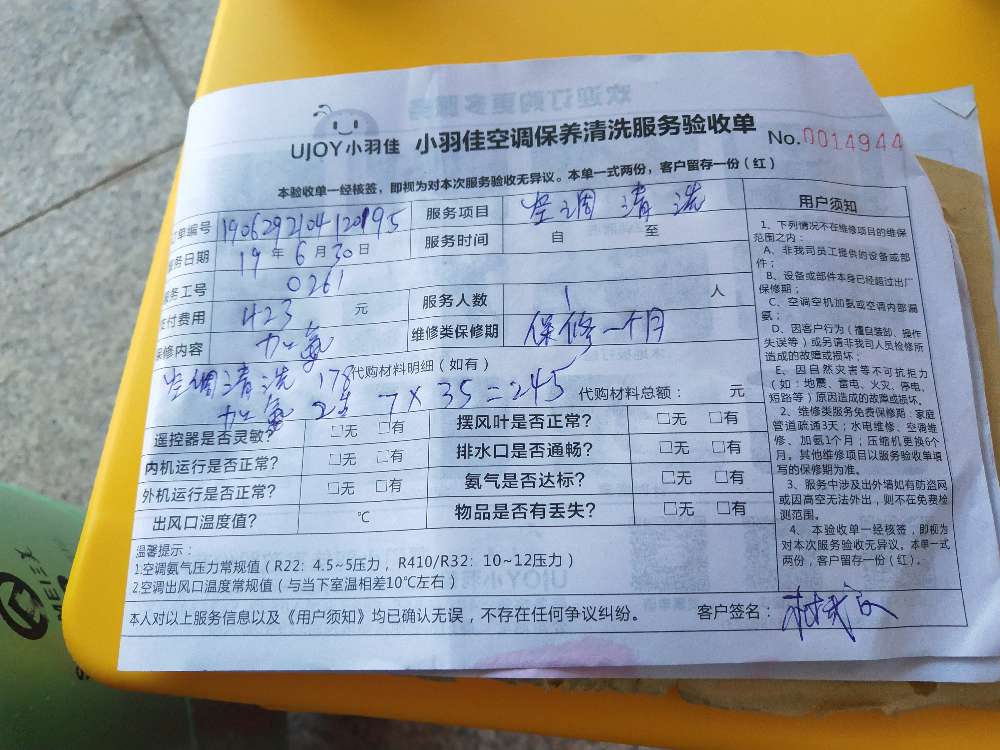 UJOY小羽佳 小羽佳空调保养清洗服务验收单 No.0014944
本验收单一经核签，即视为对本次服务验收无异议。本单一式两份，客户留存一份（红）
单编号 1906292104120195 服务项目 空调清洗
服务日期 19年6月30日 服务时间 自 至
务工号 0261
支付费用 423 元 服务人数 1 人
保修内容 加氨 维修类保修期 保修一个月
代购材料明细（如有）
空调清洗 178
加氨 7×35=245 代购材料总额： 元
遥控器是否灵敏？ □无 □有 摆风叶是否正常？ □无 □有
内机运行是否正常？ □无 □有 排水口是否通畅？ □无 □有
外机运行是否正常？ □无 □有 氨气是否达标？ □无 □有
出风口温度值？ ℃ 物品是否有丢失？ □无 □有
温馨提示：
1.空调氨气压力常规值（R22：4.5~5压力，R410/R32：10~12压力）
2.空调出风口温度常规值（与当下室温相差10℃左右）
本人对以上服务信息以及《用户须知》均已确认无误，不存在任何争议纠纷。 客户签名：
用户须知
1、下列情况不在维修项目的维保
范围之内：
A、非我司员工提供的设备或部
件；
B、设备或部件本身已经超过出厂
保修期；
C、空调空机加氨或空调内部漏
氨；
D、因客户行为（擅自装卸、操作
失误等）或另请非我司人员检修所
造成的故障或损坏；
E、因自然灾害等不可抗拒力
（如：地震、雷电、火灾、停电、
短路等）原因造成的故障或损坏。
2、维修类服务免费保修期：家庭
管道疏通3天；水电维修、空调维
修、加氨1个月；压缩机更换6个
月。其他维修项目以服务验收单填
写的保修期为准。
3、服务中涉及出外墙如有防盗网
或因高空无法外出，则不在免费检
测范围。
4、本验收单一经核签，即视为
对本次服务验收无异议。本单一式
两份，客户留存一份（红）。